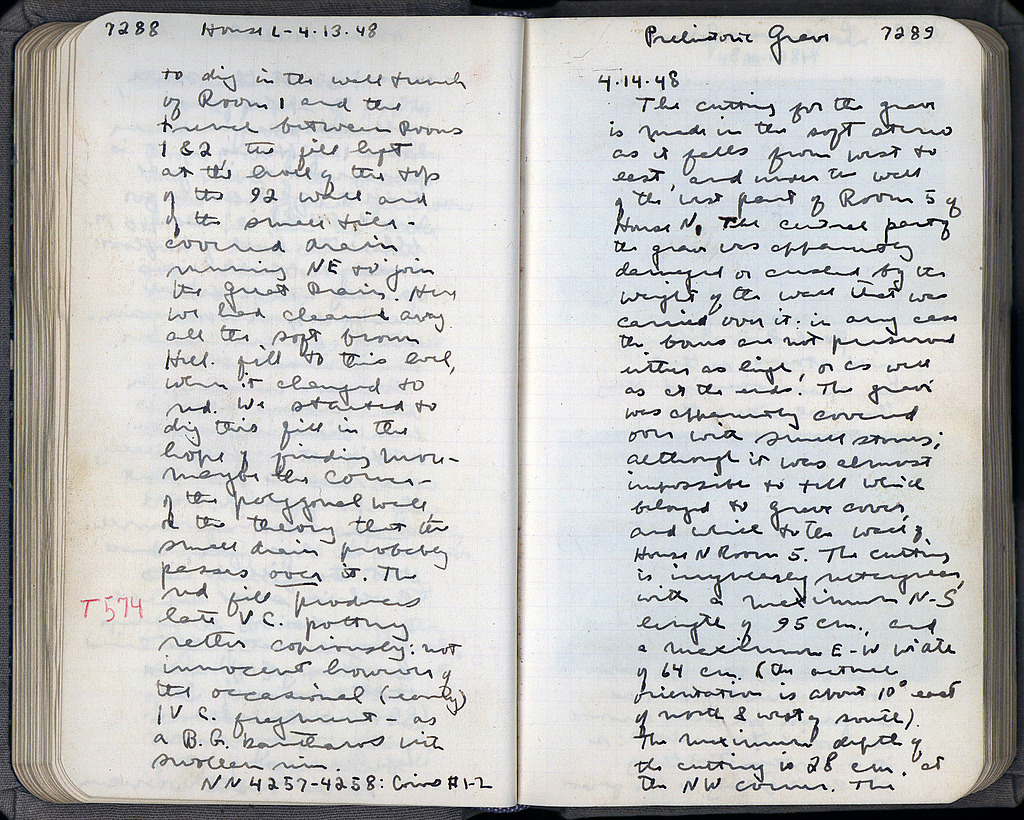 7288 House L - 4.13.48
to dig in the wall trench
of Room 1 and the
trench between Rooms
1 & 2, the fill left
at the level of the tops
of the 92 wall and
of the small tile-
covered drain
running NE to join
the Great Drain. Here
we had cleared away
all the soft brown
Hell. fill to this level,
when it changed to
red. We started to
dig this fill in the
hope of finding more -
maybe the corner
of the polygonal wall
on the theory that the
small drain probably
passes over it. The
T 574
red fill produces
late V C. pottery
rather copiously: not
innocent however of
the occasional (early)
IV C. fragment - as
a B.G. kantharos with
swollen rim.
NN 4257-4258: Coins #1-2
Prehistoric Grave 7289
4.14.48
The cutting for the grave
is made in the soft stereo
as it falls from west to
east, and under the wall
of the west part of Room 5 of
House N. The central part of
the grave was apparently
damaged or crushed by the
weight of the wall that was
carried over it: in any case
the bones are not preserved
either as high, or as well
as at the ends. The grave
was apparently covered
over with small stones;
although it was almost
impossible to tell which
belonged to grave cover,
and which to the wall of
House N Room 5. The cutting
is irregularly rectangular,
with a maximum N-S
length of 95 cm., and
a maximum E-W width
of 64 cm. (the actual
orientation is about 10° east
of north & west of south).
The maximum depth of
the cutting is 28 cm. at
the NW corner. The